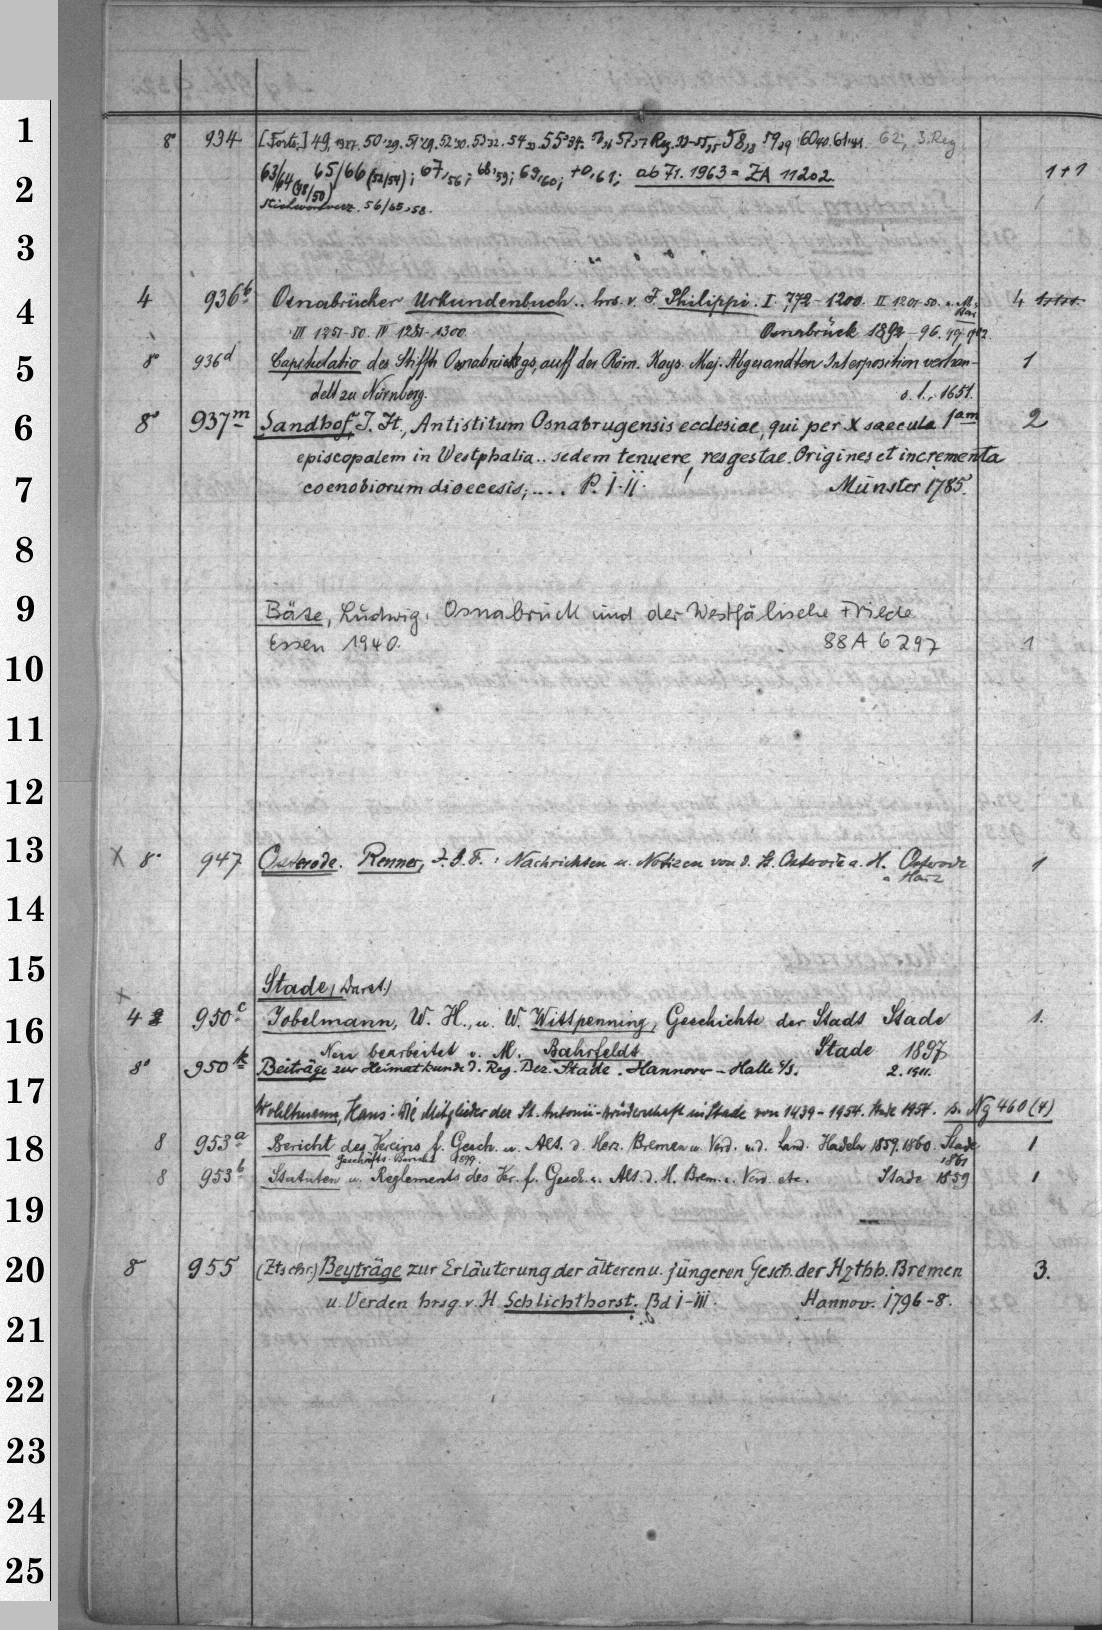 1
2
3
4
5
6
7
8
9
10
11
12
13
14
15
16
17
18
19
20
21
22
23
24
25
8° 934 [Forts.] 49, 1927. 50,29. 51,29. 52,30. 53,32. 54,33. 55,34. 57,37 Reg. 58,38 59,39 60,40. 61,41. 62; 3. Reg
63/64 (48/50) 65/66 (52/54); 67,56; 68,59; 69,60; 70,61; ab 71. 1963 = ZA 11202. 1+1
Stichwortverz. 56/65,58.
4 936b Osnabrücker Urkundenbuch.. hrs. v. F. Philippi. I. 772-1200. II 1201-50. 4
III 1251-80. IV 1281-1300. Osnabrück 1892-96.
8° 936d Capitulatio des Stiffts Osnabrückgs, auff der Röm. Kays. Maj. Abgesandten Interposition verhan- 1
delt zu Nürnberg. s. l., 1651.
8° 937m Sandhof, J. It., Antistitum Osnabrugensis ecclesiae, qui per X saecula 1am 2
episcopalem in Westphalia.. sedem tenuere, res gestae. Origines et incrementa
coenobiorum dioecesis; .... P. I-II. Münster 1785.
Bäte, Ludwig: Osnabrück und der Westfälische Friede
Essen 1940. 88 A 6297 1
X 8° 947 Osterode. Renner, J. G. F.: Nachrichten u. Notizen von d. St. Osterode a. H. Osterode 1
a Harz
Stade (Darst.)
4 950c Jobelmann, W. H., u. W. Wittpenning, Geschichte der Stadt Stade 1.
Neu bearbeitet v. M. Bahrfeldt Stade 1897
8° 950k Beiträge zur Heimatkunde d. Reg. Bez. Stade. Hannover - Halle a/S. 2. 1911.
Wohltmann, Hans: Die Mitglieder der St. Antonii-Brüderschaft in Stade von 1439-1954. Stade 1954. s. Ng 460 (4)
8 953a Bericht des Vereins f. Gesch. u. Alt. d. Herz. Bremen u. Verd. u. d. Land. Hadeln 1859. 1860. Stade 1
Geschäfts-Bericht 1899. 1861
8 953b Statuten u. Reglements des Ver. f. Gesch. u. Alt. d. H. Brem. u. Verd. etc. Stade 1859 1
8 955 (Ztschr.) Beyträge zur Erläuterung der älteren u. jüngeren Gesch. der Hzthh. Bremen 3.
u. Verden hrsg. v. H. Schlichthorst. Bd I-III. Hannov. 1796-8.